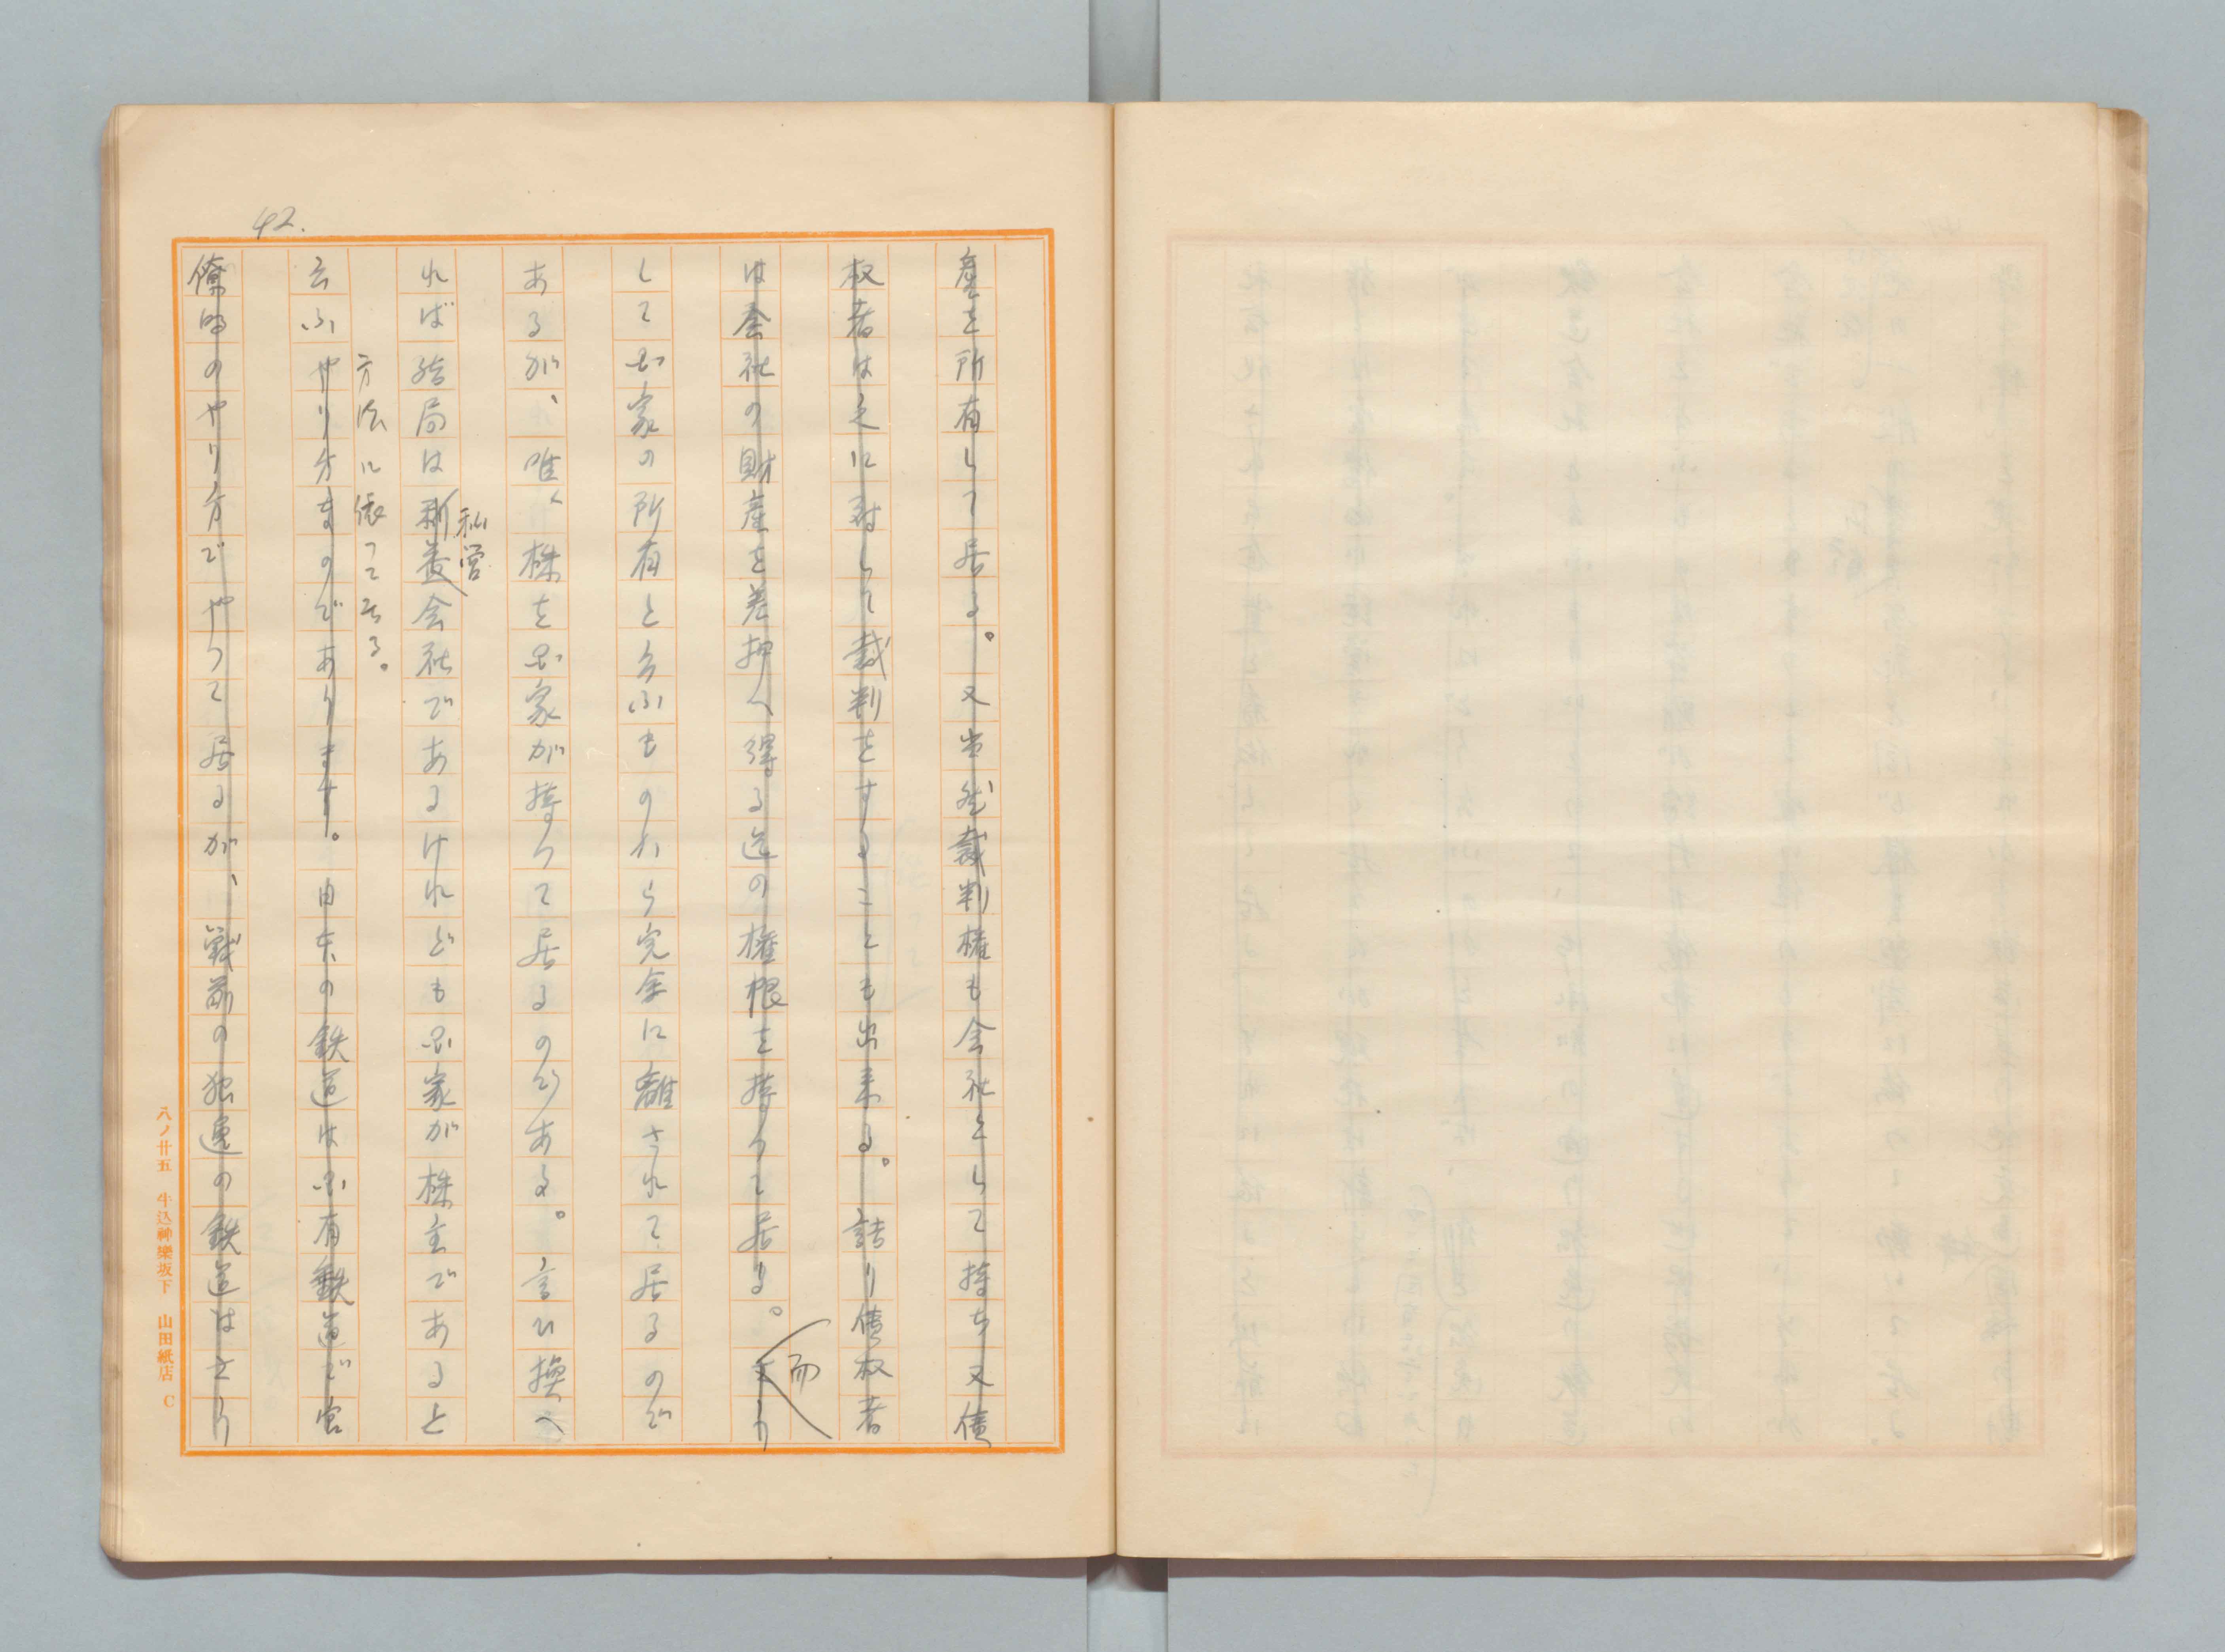 42.
産を所有して居る。又当然裁判権も会社として持ち又債
权者は之に対して裁判をすることも出来る。詰り債权者
は会社の財産を差押へ得る迄の権限を持つて居る。
而
して国家の所有と云ふものから完全に離されて居るので
あるが、唯、株を国家が持つて居るのである。言ひ換へ
私営
れば結局は会社であるけれども国家が株主であると
方法に依つてゐる。
云ふやり方なのであります。由来の鉄道は国有鉄道で官
僚的のやり方でやつて居るが、戦前の独逸の鉄道は
八ノ廿五 牛込神樂坂下 山田紙店 C